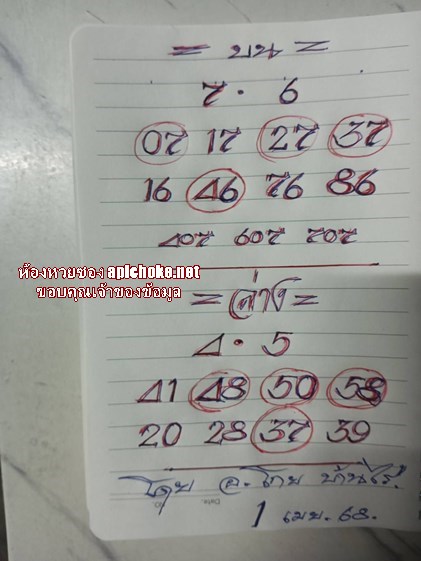 = บน =
7 · 6
07 17 27 37
16 46 76 86
407 607 707
ห้องหวยซอง apichoke.net
ขอบคุณเจ้าของข้อมูล
= ล่าง =
4 · 5
41 48 50 58
20 28 37 39
โดย อ. โทย บ้านไร่.
Date
1 เมย. 68.